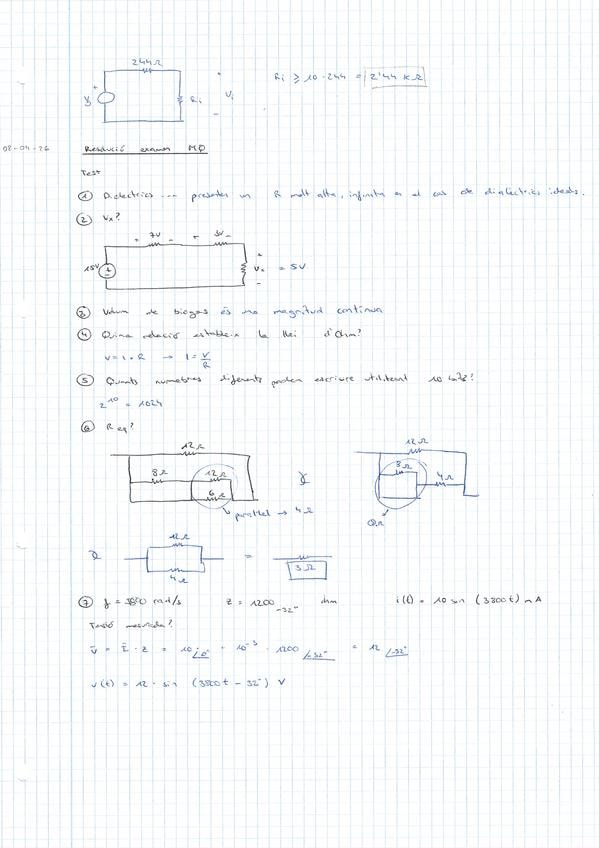 244Ω
Ri ≥ 10 · 244 = 2'44 kΩ
Ri
Vi
Resolució examen MQ
Test
① Dielèctrics ... presenten un R molt alta, infinita en el cas de dielèctrics ideals.
② Vx?
+ 7V - + 3V -
15V
+ Vx = 5V -
③ Volum de biogas és una magnitud contínua
④ Quina relació estableix la llei d'Ohm?
V = I · R → I = V/R
⑤ Quants numeros diferents poden escriure utilitzant 10 bits?
2^10 = 1024
⑥ Req?
12Ω
8Ω 12Ω
6Ω
parallel → 4Ω
12Ω
8Ω 4Ω
0Ω
12Ω
4Ω
=
3Ω
⑦ f = 3800 rad/s z = 1200 -32° ohm i(t) = 10 sin (3800t) mA
Tensió mesurada?
V = I · z = 10∠0° · 10^-3 · 1200∠-32° = 12∠-32°
v(t) = 12 · sin (3800t - 32°) V